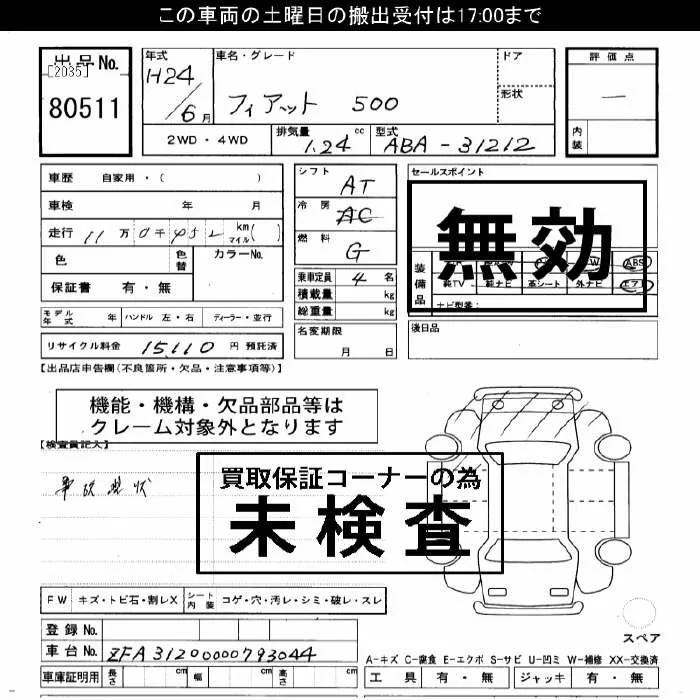 この車両の土曜日の搬出受付は17:00まで
出品No. 年式 車名・グレード ドア 評価点
[2035] H24 形状
80511 /6月 フィアット 500 —
2WD・4WD 排気量 1.24cc 型式 ABA-31212 内装
車歴 自家用・( ) シフト AT セールスポイント
車検 年 月 冷房 AC 無効
走行 11万0千 km マイル( ) 燃料 G
色 色替 カラーNo. 装備品 ABS
保証書 有・無 乗車定員 4名 純TV 純ナビ 革シート 外ナビ エアB
積載量 kg ナビ型番:
モデル年式 年 ハンドル 左・右 ディーラー・並行 総重量 kg 後日品
リサイクル料金 15,110 円 預託済 名変期限 月 日
【出品店申告欄(不良箇所・欠品・注意事項等)】
機能・機構・欠品部品等は
クレーム対象外となります
【検査員記入】
買取保証コーナーの為
事故現状
未検査
FW キズ・トビ石・割レX シート内装 コゲ・穴・汚レ・シミ・破レ・スレ
登録No. スペア
車台No. ZFA31200000793044 A-キズ C-腐食 E-エクボ S-サビ U-凹ミ W-補修 XX-交換済
車庫証明用 長さ cm 幅 cm 高さ cm 工具 有・無 ジャッキ 有・無